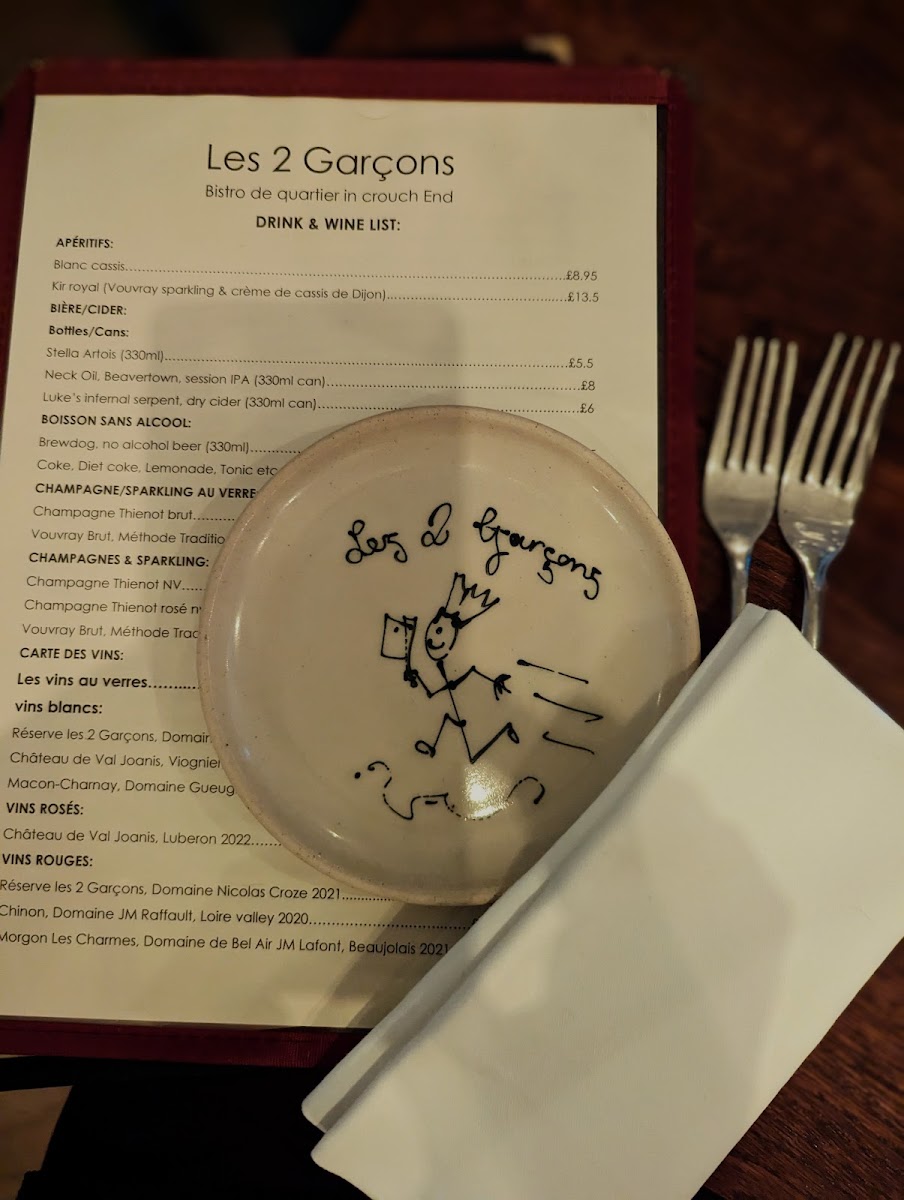 Les 2 Garçons
Bistro de quartier in crouch End
DRINK & WINE LIST:
APÉRITIFS:
Blanc cassis............£8.95
Kir royal (Vouvray sparkling & crème de cassis de Dijon)............£13.5
BIÈRE/CIDER:
Bottles/Cans:
Stella Artois (330ml)............£5.5
Neck Oil, Beavertown, session IPA (330ml can)............£8
Luke's infernal serpent, dry cider (330ml can)............£6
BOISSON SANS ALCOOL:
Brewdog, no alcohol beer (330ml)............
Coke, Diet coke, Lemonade, Tonic etc
CHAMPAGNE/SPARKLING AU VERRE
Champagne Thienot brut............
Vouvray Brut, Méthode Traditio
CHAMPAGNES & SPARKLING:
Champagne Thienot NV............
Champagne Thienot rosé n
Vouvray Brut, Méthode Trad
CARTE DES VINS:
Les vins au verres............
vins blancs:
Réserve les 2 Garçons, Domain
Château de Val Joanis, Viognier
Macon-Charnay, Domaine Gueug
VINS ROSÉS:
Château de Val Joanis, Luberon 2022............
VINS ROUGES:
Réserve les 2 Garçons, Domaine Nicolas Croze 2021............
Chinon, Domaine JM Raffault, Loire valley 2020............
Morgon Les Charmes, Domaine de Bel Air JM Lafont, Beaujolais 2021
Les 2 Garçons